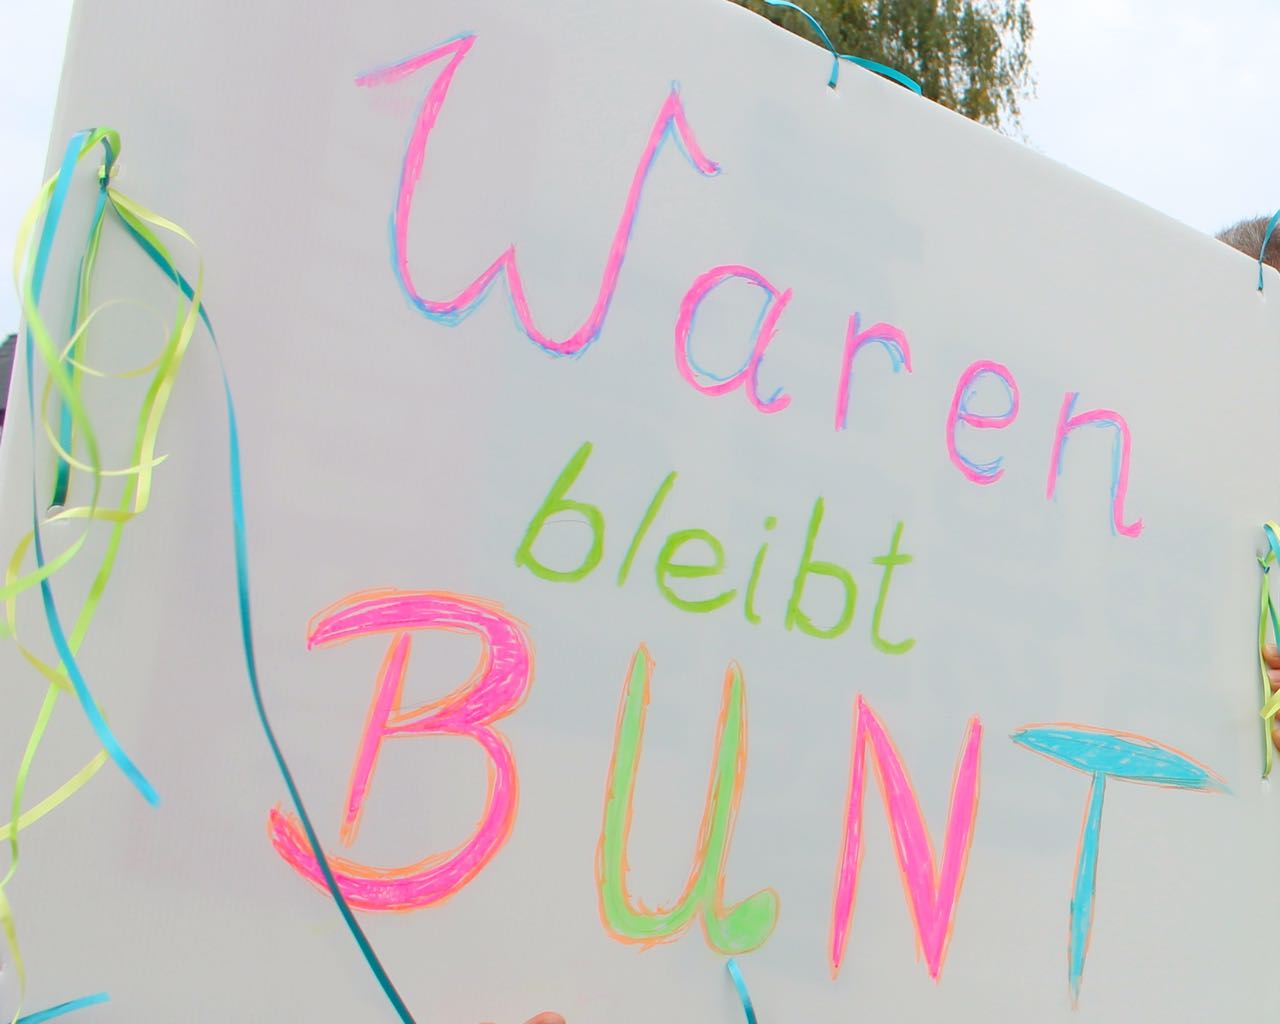 Waren
bleibt
BUNT